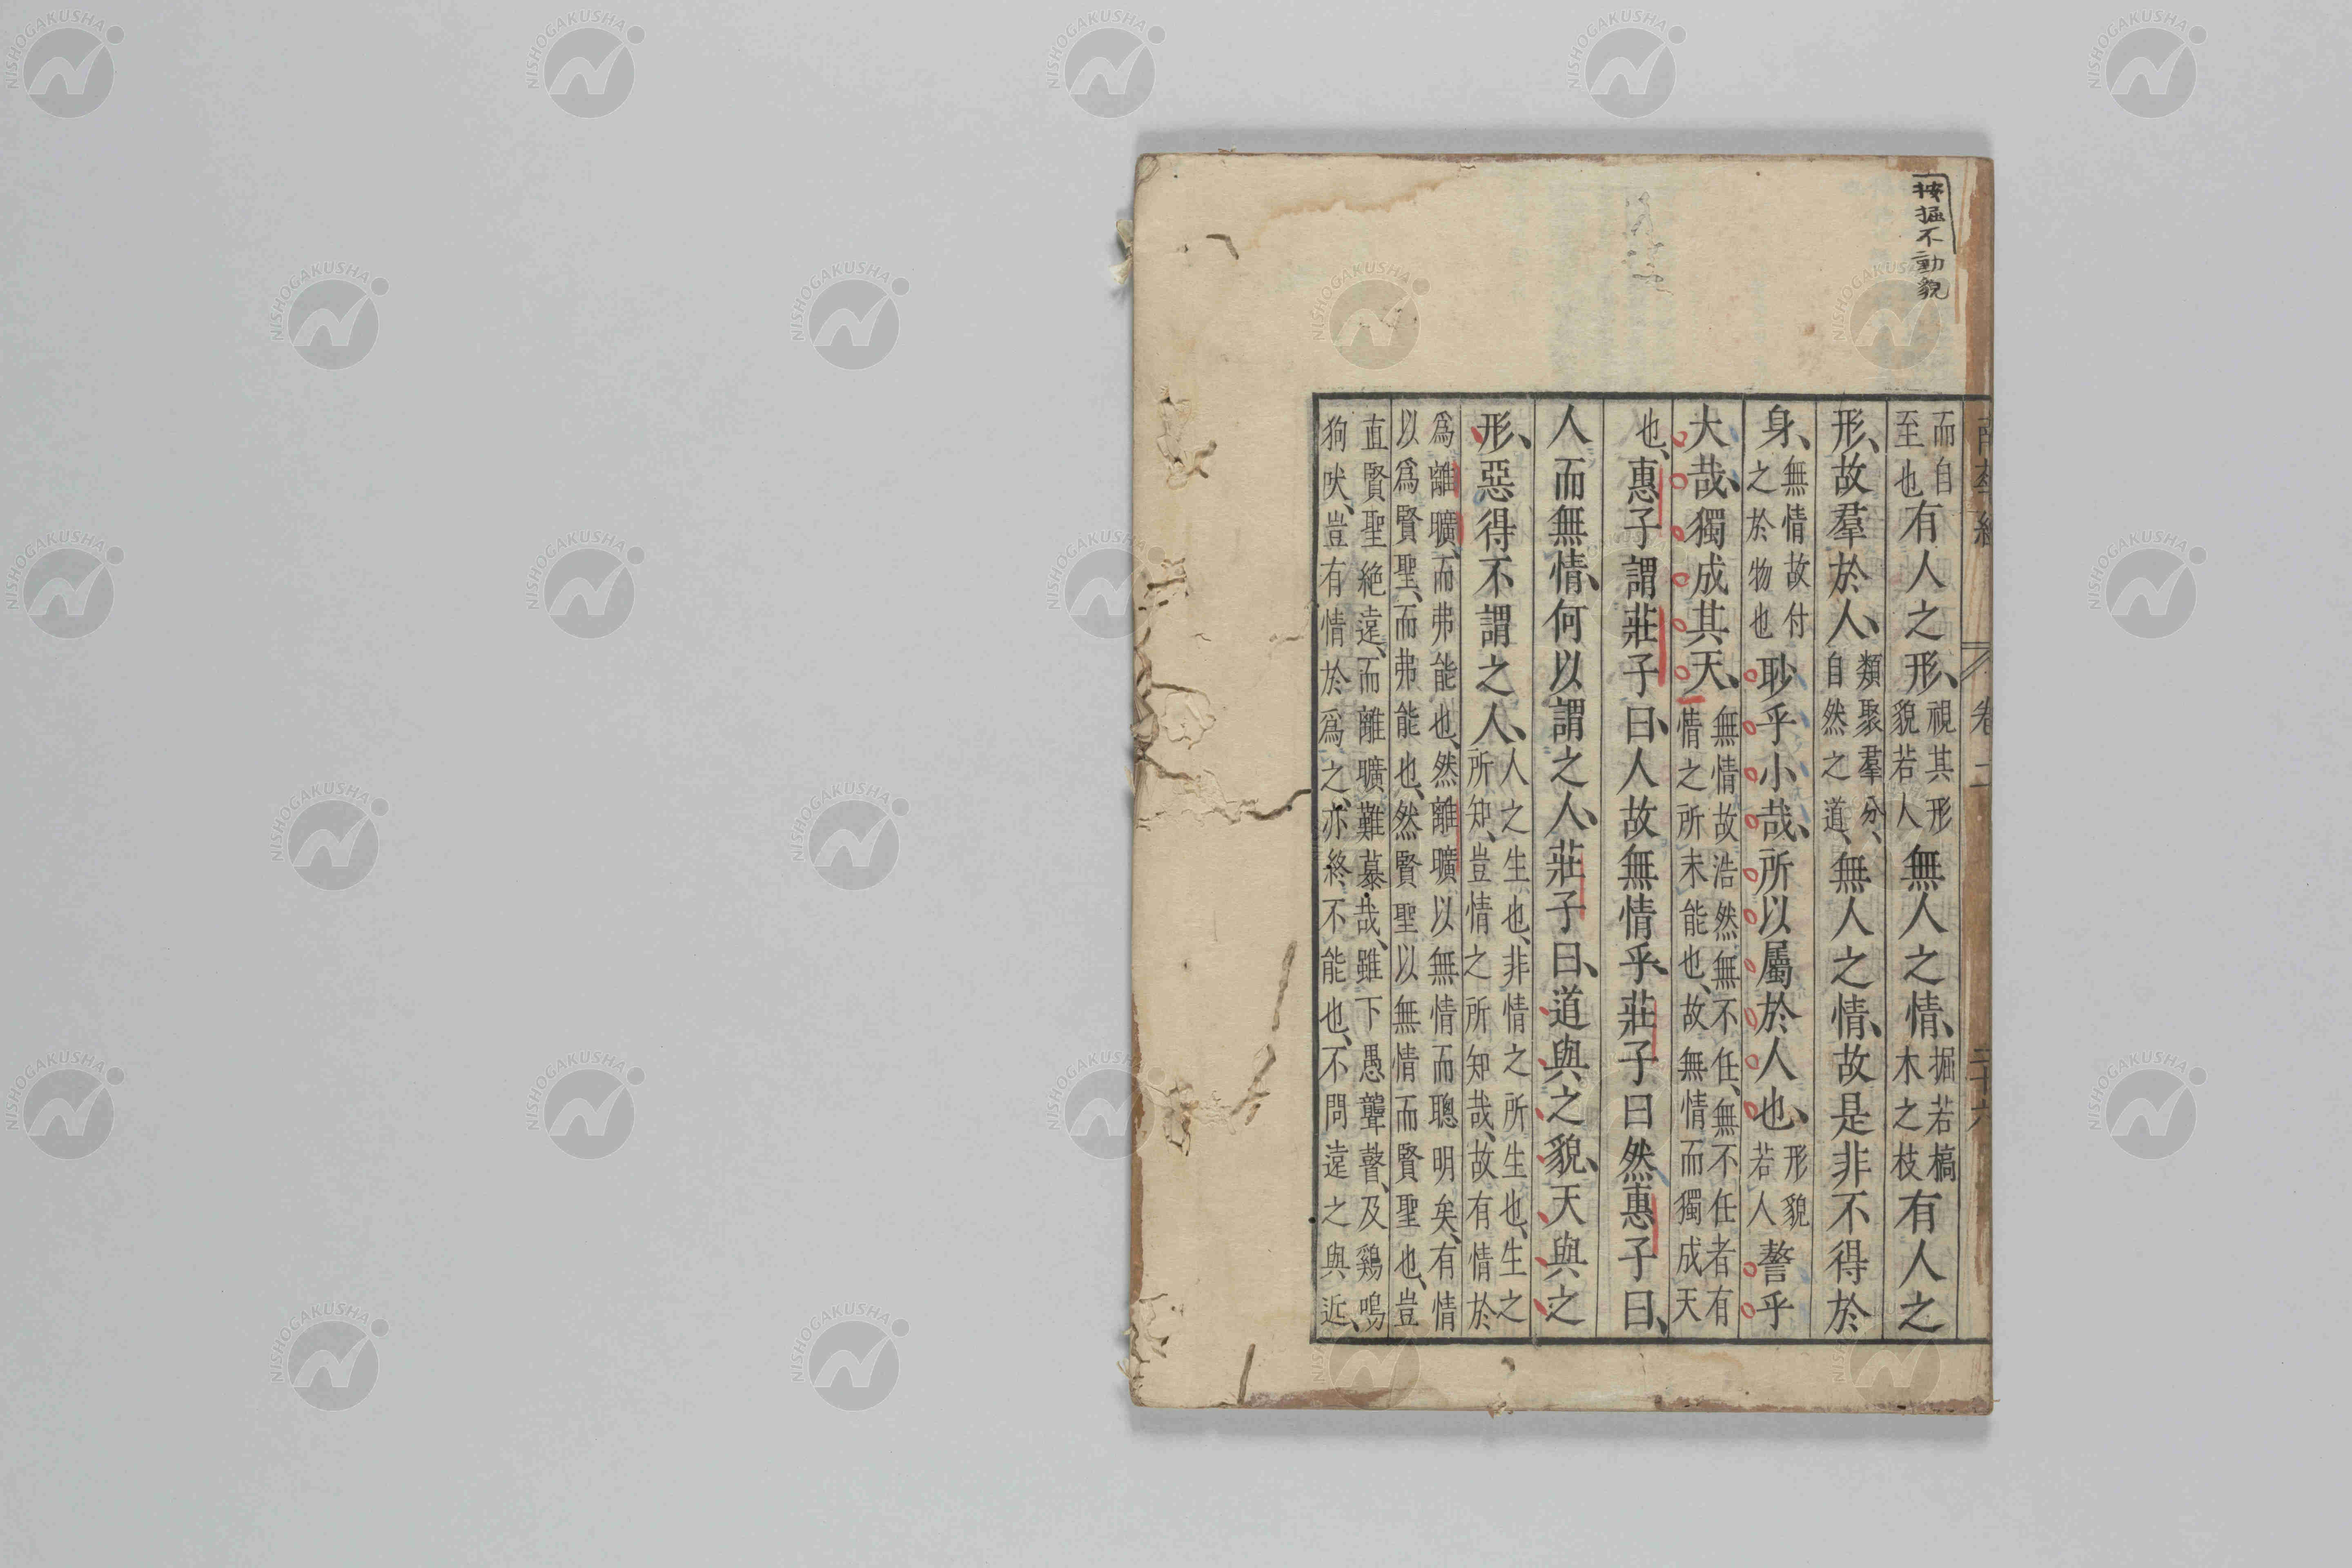 按掘不動貌
南華經 卷二
而自至也有人之形、視其形貌若人無人之情、掘若槁木之枝有人之
形、故羣於人、類聚羣分、自然之道、無人之情、故是非不得於
身、無情故付之於物也眇乎小哉、所以屬於人也、形貌若人謷乎
大哉、獨成其天、無情故浩然無不任、無不任者有情之所未能也、故無情而獨成天
也、惠子謂莊子曰、人故無情乎、莊子曰然惠子曰、
人而無情、何以謂之人、莊子曰、道與之貌、天與之
形、惡得不謂之人、人之生也、非情之所生也、生之所知、豈情之所知哉、故有情於
爲離曠、而弗能也、然離曠以無情而聰明矣、有情
以爲賢聖、而弗能也、然賢聖以無情而賢聖也、豈
直賢聖絕遠、而離曠難慕哉、雖下愚聾瞽、及鷄鳴
狗吠、豈有情於爲之、亦終不能也、不問遠之與近、
NISHOGAKUSHA